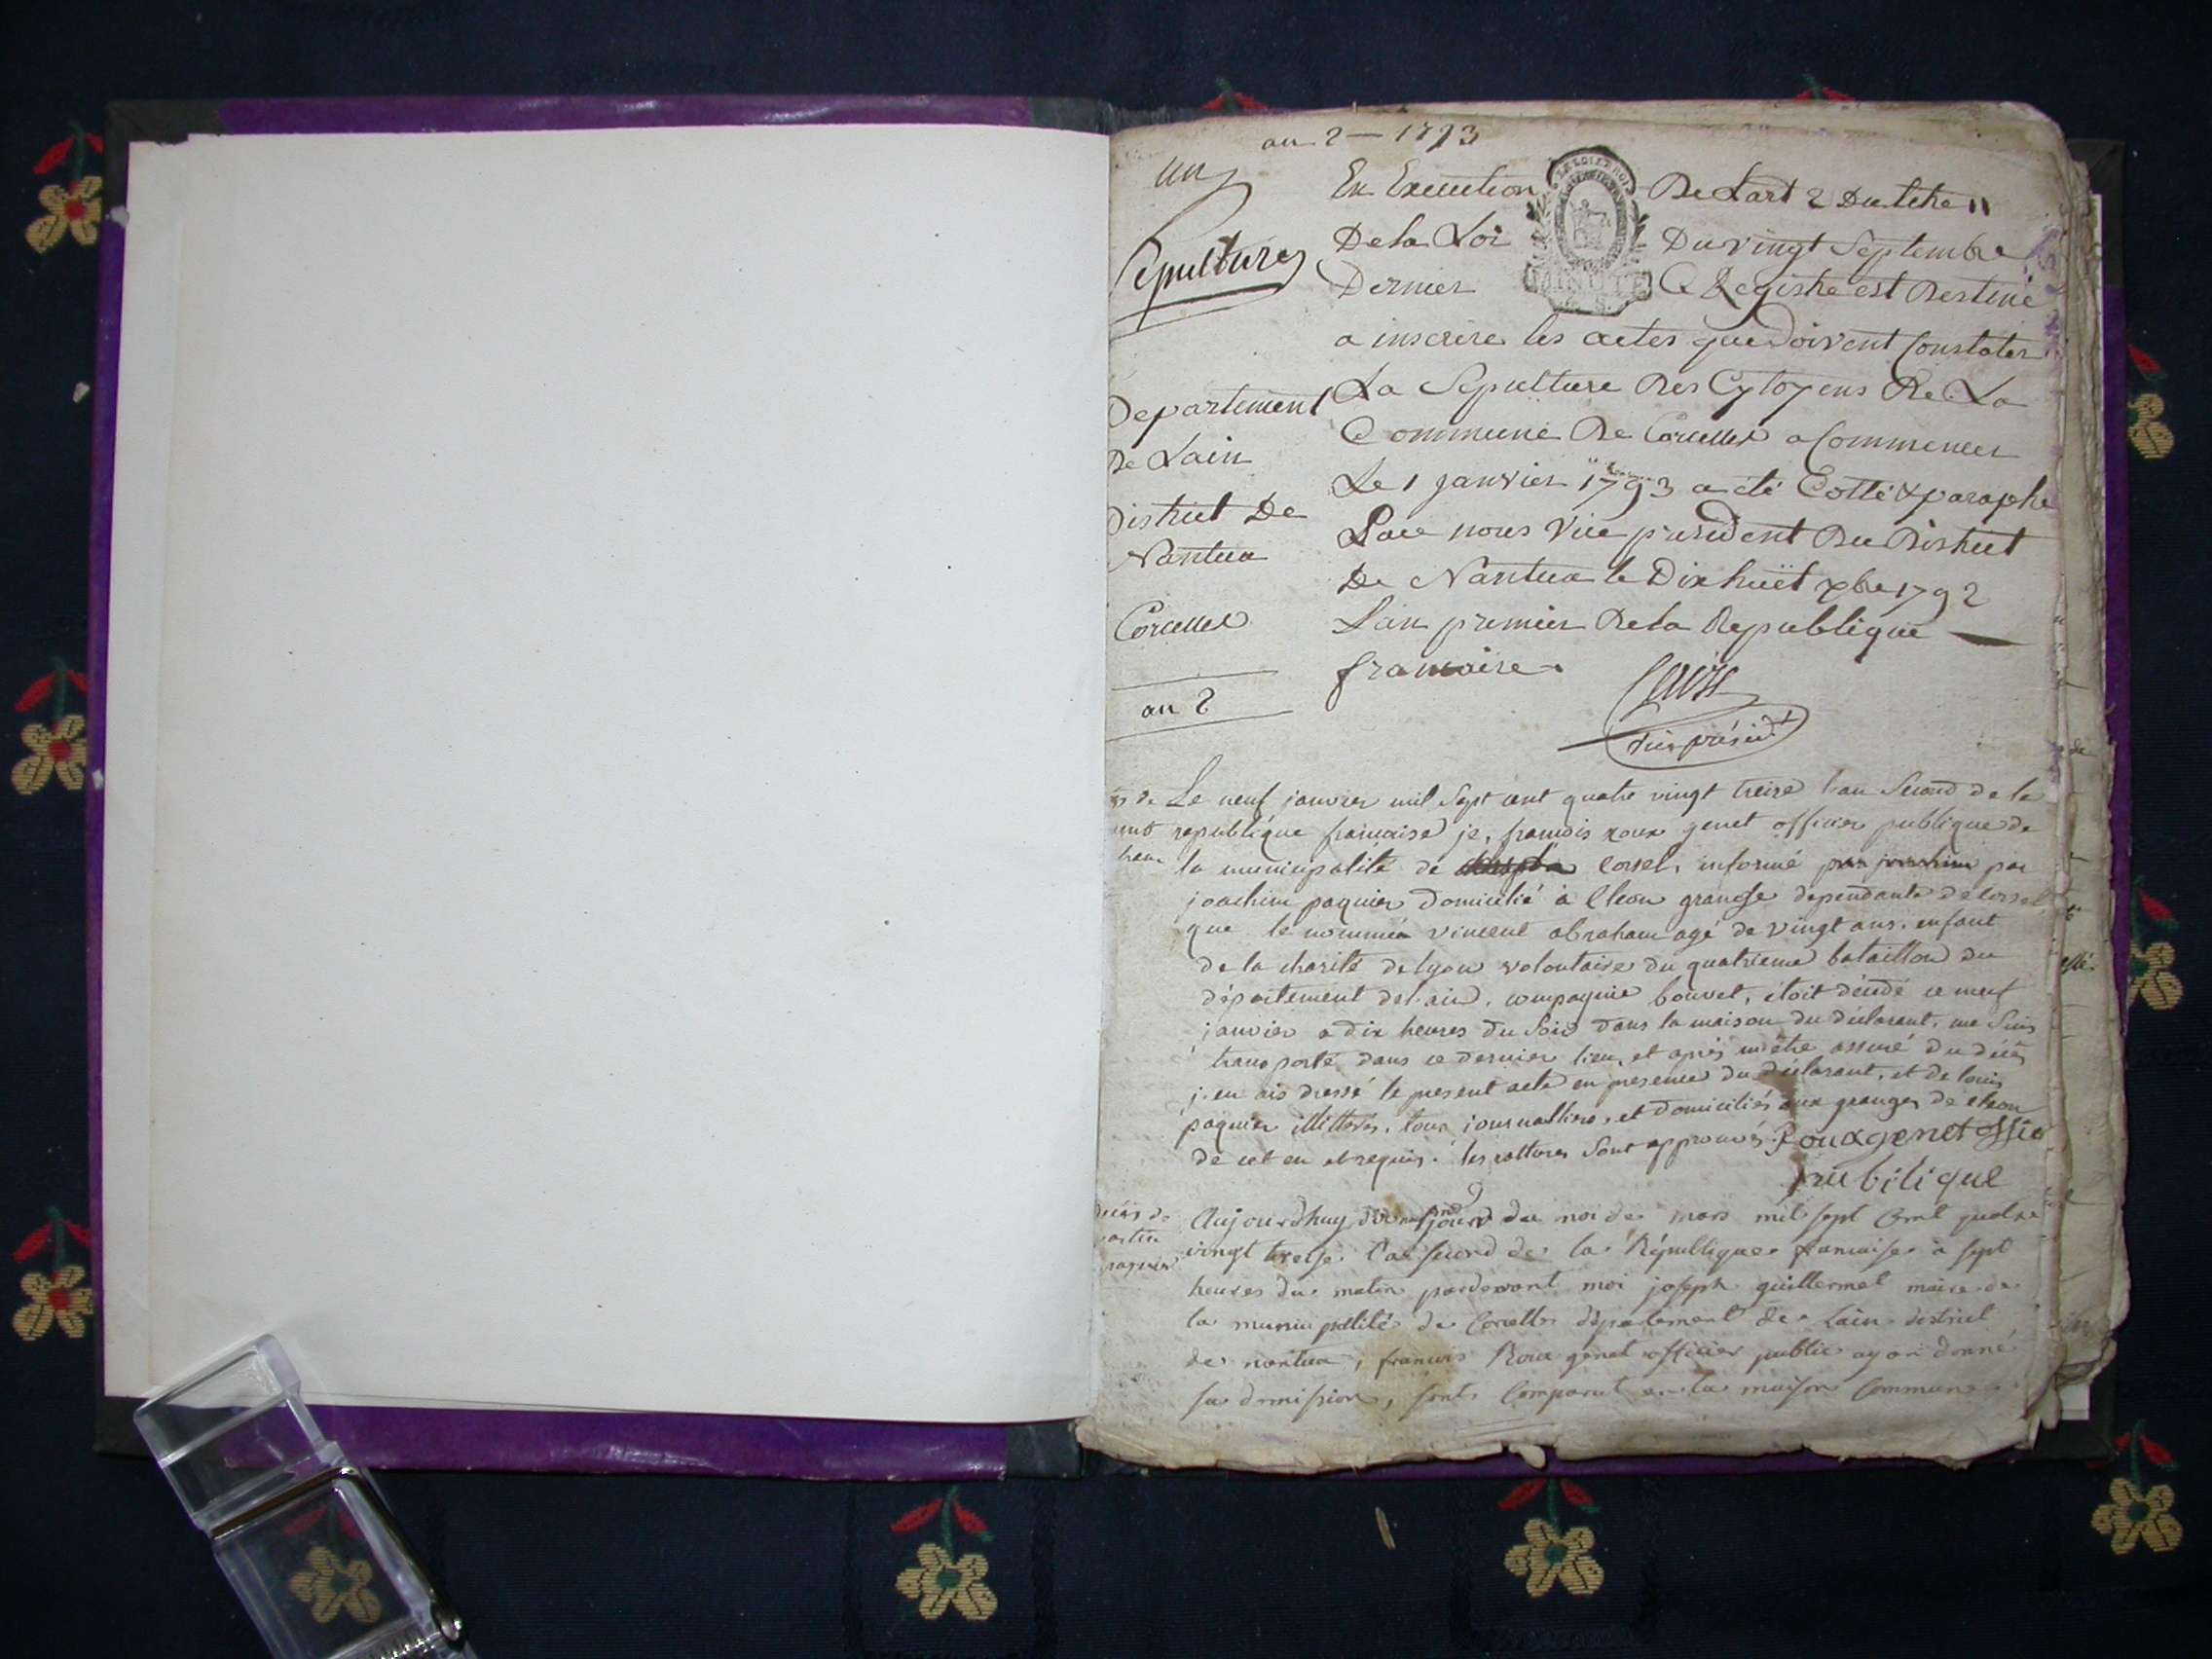 an 2 — 1793
un
Sepultures
En Execution De Lart 2 Du titre 11
De la Loi Du vingt Septembre
Dernier Ce Registre est Destiné
a inscrire les actes que doivent Constater
La Sepulture Des Cytoyens De La
Commune De Corcelles a Commencer
Le 1 janvier 1793 a été Cotté & paraphe
Par nous Vice president Du District
De Nantua le Dix huët xbre 1792
Lan premier De la Republique
francaise.
Departement
De Lain
District De
Nantua
Corcelles
an 2
vice présidt
Le neuf janvier mil Sept cent quatre vingt treize l'an Second de la
republique francaise je, francois roux genet officier publique de
la municipalité de corcel, informé par
joachim paquier domicilié à cleon grange dependante de corcel
que le nommé vincent abraham agé de vingt ans, enfant
de la charité de lyon volontaire du quatrieme bataillon du
département de l'ain, compagnie bouvet, étoit décédé ce neuf
janvier a dix heures du Soir dans la maison du déclarant, me Suis
transporté dans ce dernier lieu, et après m'etre assuré du décès
j'en ais dressé le present acte en presence du déclarant, et de louis
paquier illitterés, tous journalliers, et domiciliés aux granges de cleon
de cet en et requis. les ratures Sont approuvés. Rouxgenet offic
publique
décès de
martin
paquier
Aujourdhuy jour du moi de mars mil sept Cent quatre
vingt treise l'an second de la République francaise à sept
heures du matin pardevant moi joseph guillermet maire de
la municipallité de Corcelles département de Lain district
de nantua, francois Roux genet officier public ayan donné
sa demission, sont Comparut en la maison Commune